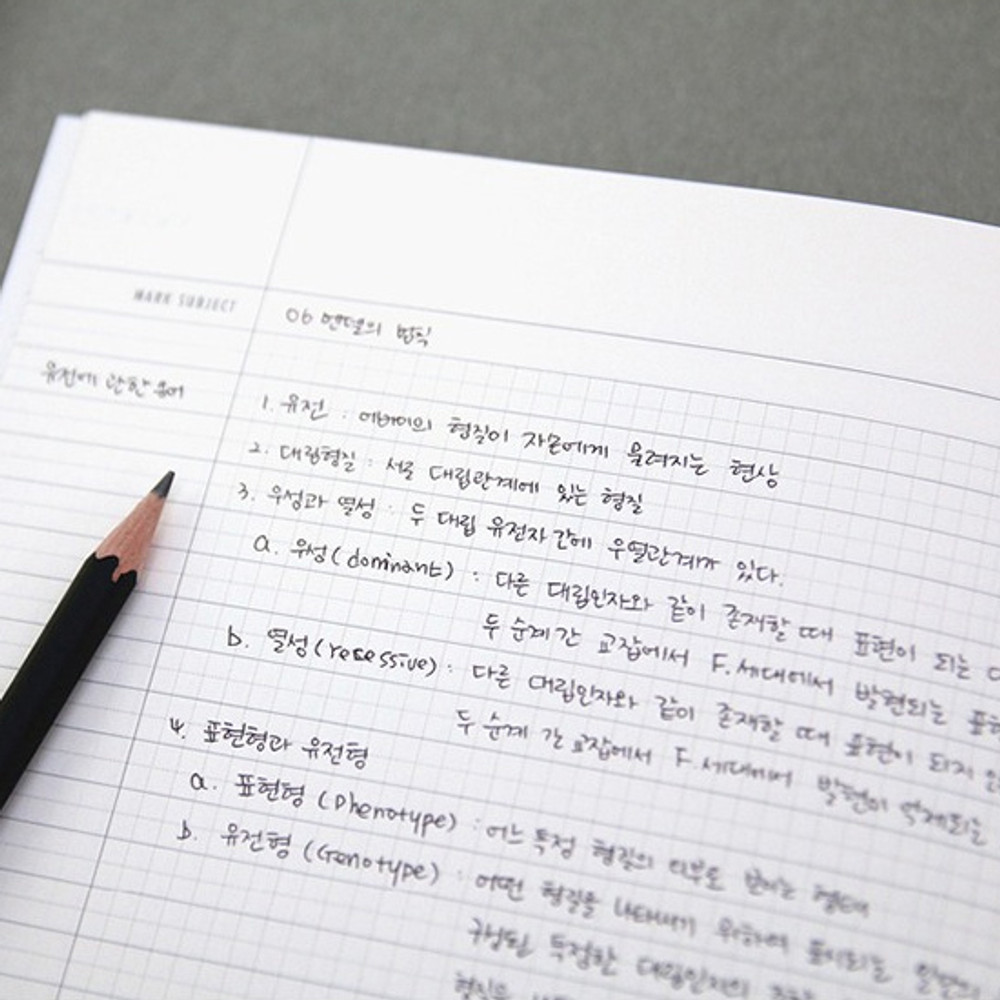 MARK SUBJECT
06 멘델의 법칙
유전에 관한 용어
1. 유전 : 어버이의 형질이 자손에게 물려지는 현상
2. 대립형질 : 서로 대립관계에 있는 형질
3. 우성과 열성 : 두 대립 유전자 간에 우열관계가 있다.
a. 우성(dominant) : 다른 대립인자와 같이 존재할 때 표현이 되는
두 순계 간 교잡에서 F.세대에서 발현되는
b. 열성(recessive) : 다른 대립인자와 같이 존재할 때 표현이 되지
두 순계 간 교잡에서 F.세대에서 발현이 억제되는
4. 표현형과 유전형
a. 표현형 (Phenotype) : 어느 특정 형질의 외부로 보이는 형태
b. 유전형 (Genotype) : 어떤 형질을 나타내기 위하여 표시되는
특정한 대립인자의